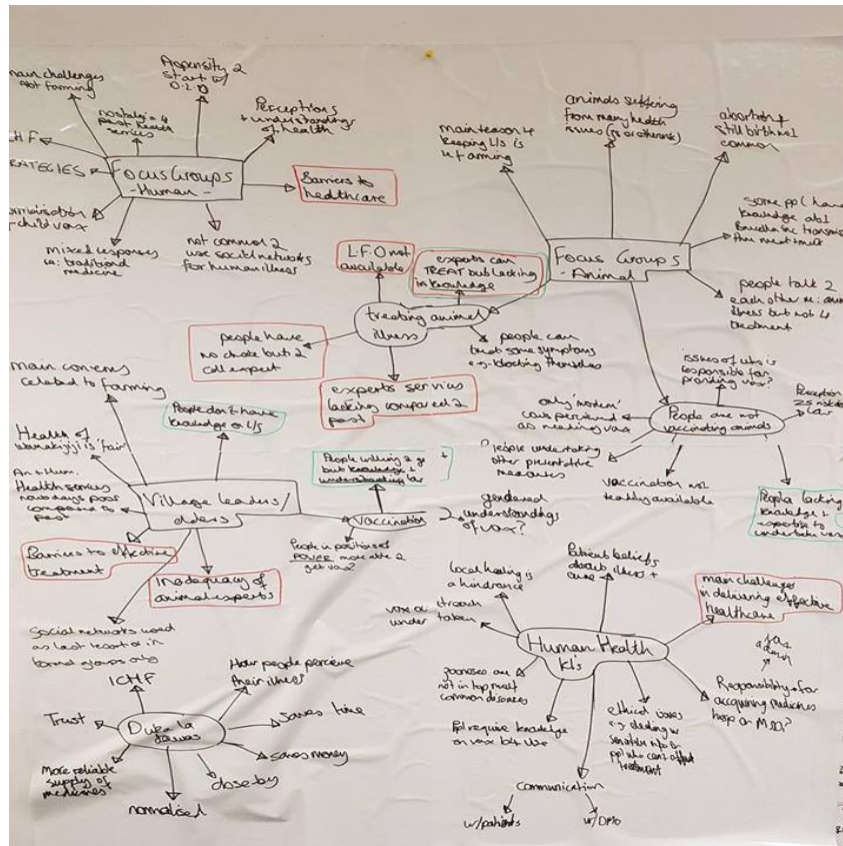 main challenges
abt farming
Propensity 2
start w/
D.L.D
nostalgia 4
past health
services
Perceptions
+ understandings
of health
HF
STRATEGIES
FOCUS GROUPS
-Human-
Barriers to
healthcare
child vax
mixed responses
re: traditional
medicine
not common 2
use social networks
for human illness
main reason 4
keeping L/s is
4 farming
animals suffering
from many health
issues
abortion +
still birth
common
some ppl have
knowledge abt
Brucella
people talk 2
each other re: animal
illness but not 4
treatment
Focus Groups
-Animal
L.F.O not
available
experts can
TREAT but lacking
in knowledge
treating animal
illness
people have
no choice but 2
call expert
experts services
lacking compared 2
past
people can
treat some symptoms
issues of who is
responsible for
providing vax?
Perception
People are not
vaccinating animals
only 'modern'
cows perceived
as needing vax
People undertaking
other preventative
measures
vaccination not
readily available
People lacking
knowledge +
expertise to
undertake vax
main concerns
related to farming
People don't have
knowledge on L/s
Health of
is 'fair'
Health services
nowadays poor
compared to
past
Village leaders/
elders
People willing 2 go
but knowledge +
understanding low
vaccination
gendered
understandings
of vax?
People in positions of
POWER more able 2
get vax?
Barriers to effective
treatment
Inadequacy of
animal experts
Social networks used
as last resort or in
formal groups only
Local healing is
a hindrance
Patient beliefs
about illness +
cure
main challenges
in delivering effective
healthcare
vax outreach
under taken
Human Health
KI's
zoonoses are
not in top most
common diseases
Ppl require knowledge
on vax b4 use
ethical issues
e.g. dealing w
sensitive info or
ppl who can't afford
treatment
Responsibility for
acquiring medicines
communication
w/patients
w/DMO
ICHF
How people perceive
their illness
Trust
Duka la
dawas
saves time
saves money
More reliable
supply of
medicines
normalised
close by